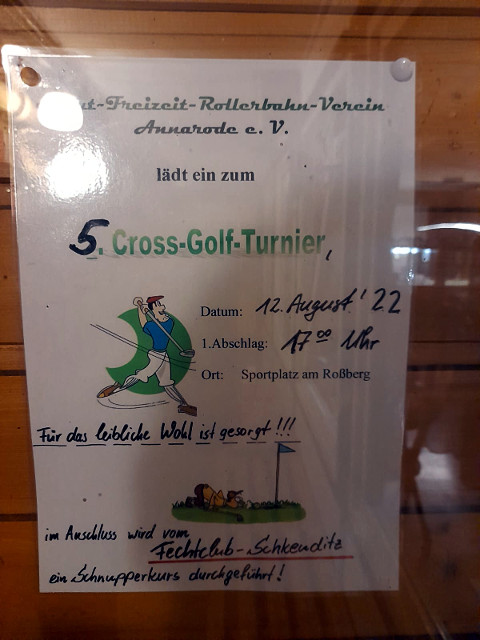 -Freizeit-Rollerbahn-Verein
Annarode e. V.
lädt ein zum
5. Cross-Golf-Turnier,
Datum: 12. August '22
1.Abschlag: 17 00 Uhr
Ort: Sportplatz am Roßberg
Für das leibliche Wohl ist gesorgt !!!
im Anschluss wird vom
Fechtclub-Schkeuditz
ein Schnupperkurs durchgeführt!